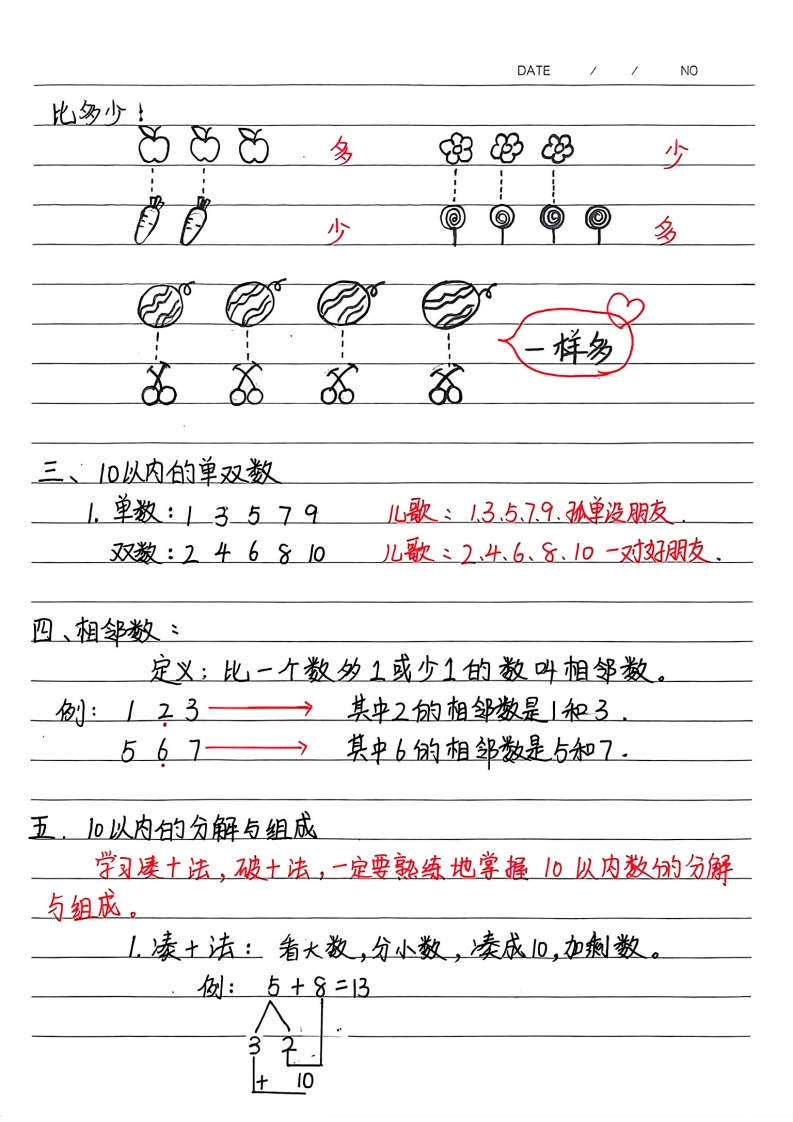 DATE / / NO
比多少!
多 少
少 多
一样多
三、10以内的单双数
1. 单数:1 3 5 7 9 儿歌:1.3.5.7.9.孤单没朋友.
双数:2 4 6 8 10 儿歌:2、4、6、8、10 一对好朋友.
四、相邻数:
定义:比一个数多1或少1的数叫相邻数。
例: 1 2 3 其中2的相邻数是1和3.
5 6 7 其中6的相邻数是5和7.
五. 10以内的分解与组成
学习凑十法,破十法,一定要熟练地掌握 10 以内数的分解
与组成。
1. 凑十法: 看大数,分小数,凑成10,加剩数。
例: 5 + 8 = 13
3 2
+ 10